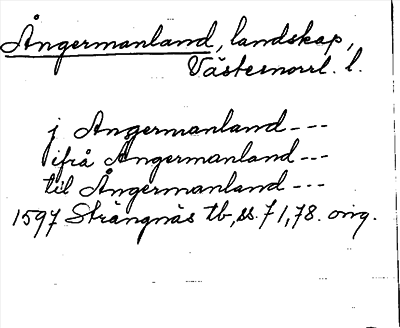 Ångermanland, landskap,
Västernorrl. l.
j Angermanland---
ifrå Angermanland---
til Ångermanland---
1597 Strängnäs tb, ss. 71, 78. orig.